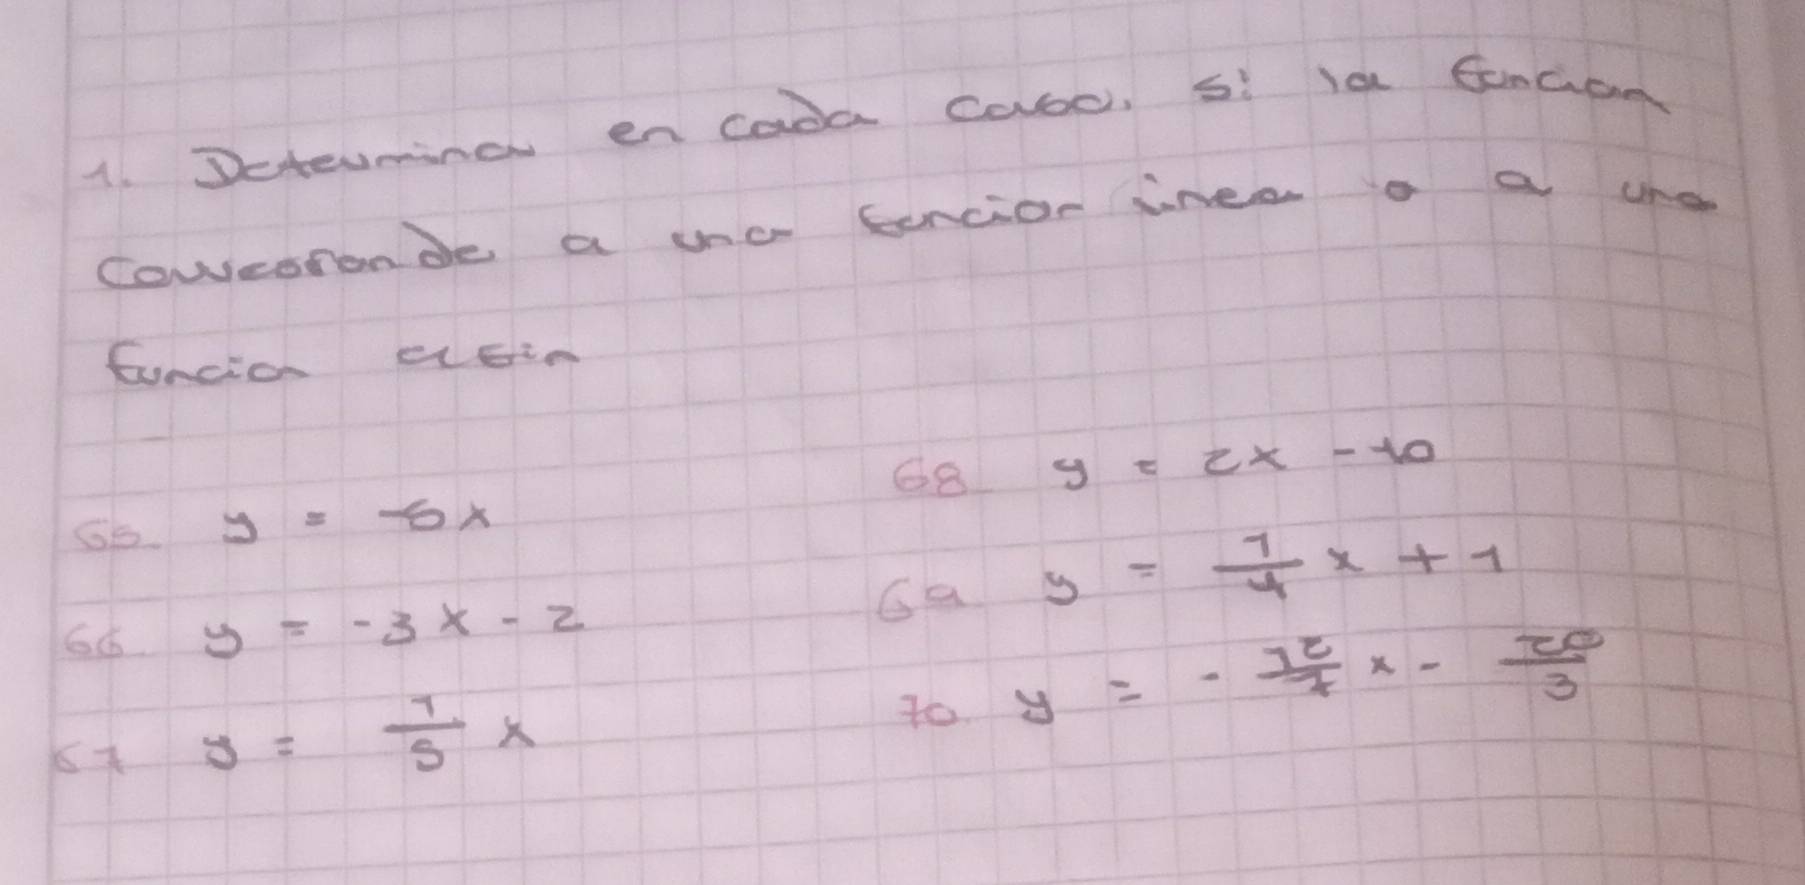 1. Determina en cada caso. si la funcion
Corresponde a una funcion linea o a una
funcion afin
65 y = -6x
66 y = -3x - 2
67 y = 1/5 x
68 y = 2x - 10
69 y = 1/4 x + 1
70 y = - 12/7 x - 20/3